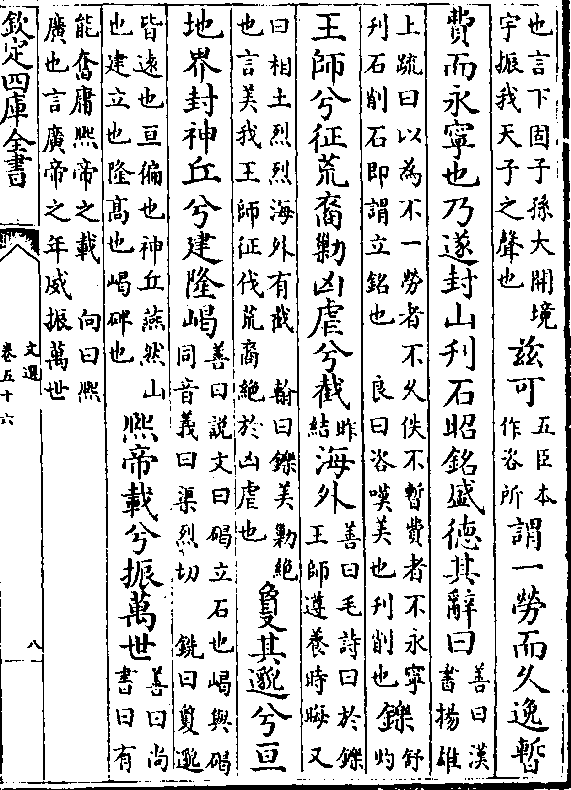 也言下固子孫大開境
宇振我天子之聲也
兹可
五臣本
作咨所
謂一勞而久逸暫
費而永寧也乃遂封山刋石昭銘盛德其辭曰
善曰漢
書揚雄
上疏曰以為不一勞者不久佚不暫費者不永寧
刋石削石即謂立銘也 良曰咨嘆美也刋削也
鑠
舒
灼
王師兮征荒裔勦凶虐兮截
昨
結
海外
善曰毛詩曰於鑠
王師遵養時晦又
曰相土烈烈海外有截 翰曰鑠美勦絶
也言美我王師征伐荒裔絶於凶虐也
敻其邈兮亘
地界封神丘兮建隆嵑
善曰説文曰碣立石也嵑與碣
同音義曰渠烈切 銑曰敻邈
皆逺也亘徧也神丘燕然山
也建立也隆髙也嵑碑也
熈帝載兮振萬世
善曰尚
書曰有
能奮庸熈帝之載 向曰熈
廣也言廣帝之年威振萬世
欽定四庫全書
文選
卷五十六
八